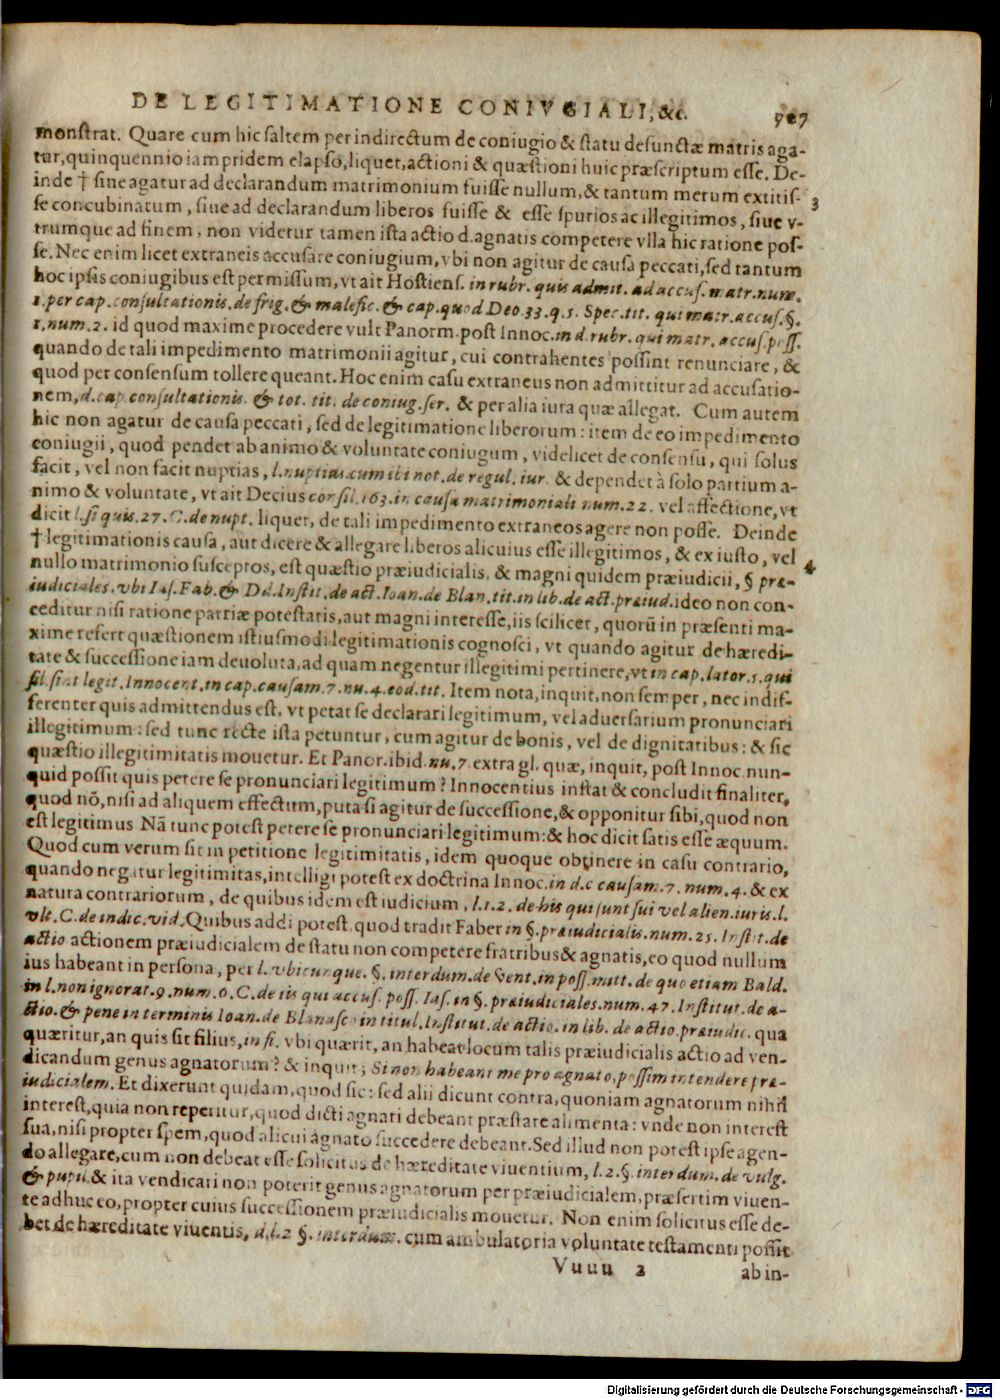 DE LEGITIMATIONE CONIVGIALI, &c. 707
monstrat. Quare cum hic saltem per indirectum de coniugio & statu defunctæ matris aga-
tur, quinquennio iam pridem elapso, liquet, actioni & quæstioni huic præscriptum esse. De-
inde † siue agatur ad declarandum matrimonium fuisse nullum, & tantum merum extitis- 3
se concubinatum, siue ad declarandum liberos fuisse & esse spurios ac illegitimos, siue v-
trumque ad finem, non videtur tamen ista actio d. agnatis competere vlla hic ratione pos-
se. Nec enim licet extraneis accusare coniugium, vbi non agitur de causa peccati, sed tantum
hoc ipsis coniugibus est permissum, vt ait Hostiens. in rubr. quis admit. ad accus. matr. num.
1. per cap. consultationis. de frig. & malefic. & cap. quod Deo. 33. q. 5. Spec. tit. qui matr. accus. §.
1. num. 2. id quod maxime procedere vult Panorm. post Innoc. in d. rubr. qui matr. accus. poss.
quando de tali impedimento matrimonii agitur, cui contrahentes possint renunciare, &
quod per consensum tollere queant. Hoc enim casu extraneus non admittitur ad accusatio-
nem, d. cap. consultationis. & tot. tit. de coniug. ser. & per alia iura quæ allegat. Cum autem
hic non agatur de causa peccati, sed de legitimatione liberorum: item de eo impedimento
coniugii, quod pendet ab animo & voluntate coniugum, videlicet de consensu, qui solus
facit, vel non facit nuptias, l. nuptias. cum ibi not. de regul. iur. & dependet à solo partium a-
nimo & voluntate, vt ait Decius consil. 163. in causa matrimoniali num. 22. vel affectione, vt
dicit l. si quis. 27. C. de nupt. liquet, de tali impedimento extraneos agere non posse. Deinde
† legitimationis causa, aut dicere & allegare liberos alicuius esse illegitimos, & ex iusto, vel 4
nullo matrimonio susceptos, est quæstio præiudicialis. & magni quidem præiudicii, § præ-
iudiciales. vbi Ias. Fab. & Dd. Instit. de act. Ioan. de Blan. tit. in lib. de act. præiud. ideo non con-
ceditur nisi ratione patriæ potestatis, aut magni interesse, iis scilicet, quorũ in præsenti ma-
xime refert quæstionem istiusmodi legitimationis cognosci, vt quando agitur de hæredi-
tate & successione iam deuoluta, ad quam negentur illegitimi pertinere, vt in cap. lator. 5. qui
fil. sint legit. Innocent. in cap. causam. 7. nu. 4. eod. tit. Item nota, inquit, non semper, nec indif-
ferenter quis admittendus est, vt petat se declarari legitimum, vel aduersarium pronunciari
illegitimum: sed tunc recte ista petuntur, cum agitur de bonis, vel de dignitatibus: & sic
quæstio illegitimitatis mouetur. Et Panor. ibid. nu. 7. extra gl. quæ, inquit, post Innoc. nun-
quid possit quis petere se pronunciari legitimum? Innocentius instat & concludit finaliter,
quod nõ, nisi ad aliquem effectum, puta si agitur de successione, & opponitur sibi, quod non
est legitimus Nã tunc potest petere se pronunciari legitimum: & hoc dicit satis esse æquum.
Quod cum verum sit in petitione legitimitatis, idem quoque obtinere in casu contrario,
quando negatur legitimitas, intelligi potest ex doctrina Innoc. in d. c causam. 7. num. 4. & ex
natura contrariorum, de quibus idem est iudicium, l. 1. 2. de his qui sunt sui vel alien. iuris. l.
vlt. C. de indic. vid. Quibus addi potest, quod tradit Faber in §. præiudicialis. num. 25. Instit. de
actio actionem præiudicialem de statu non competere fratribus & agnatis, eo quod nullum
ius habeant in persona, per l. vbicunque. §. interdum. de vent. in poss. mitt. de quo etiam Bald.
in l. non ignorat. 9. num. 6. C. de iis qui accus. poss. Ias. in §. præiudiciales. num. 47. Institut. de a-
ctio. & pene in terminis Ioan. de Blanasc. in titul. Institut. de actio. in lib. de actio. præiudic. qua
quæritur, an quis sit filius, in fi. vbi quærit, an habeat locum talis præiudicialis actio ad ven-
dicandum genus agnatorum? & inquit; Si non habeant me pro agnato, possim intendere præ-
iudicialem. Et dixerunt quidam, quod sic: sed alii dicunt contra, quoniam agnatorum nihil
interest, quia non reperitur, quod dicti agnati debeant præstare alimenta: vnde non interest
sua, nisi propter spem, quod alicui agnato succedere debeant. Sed illud non potest ipse agen-
do allegare, cum non debeat esse solicitus de hæreditate viuentium, l. 2. §. interdum. de vulg.
& pupil. & ita vendicari non poterit genus agnatorum per præiudicialem, præsertim viuen-
te adhuc eo, propter cuius successionem præiudicialis mouetur. Non enim solicitus esse de-
bet de hæreditate viuentis, d. l. 2 §. interdum. cum ambulatoria voluntate testamenti possit
Vuuu 2 ab in-
Digitalisierung gefördert durch die Deutsche Forschungsgemeinschaft - DFG